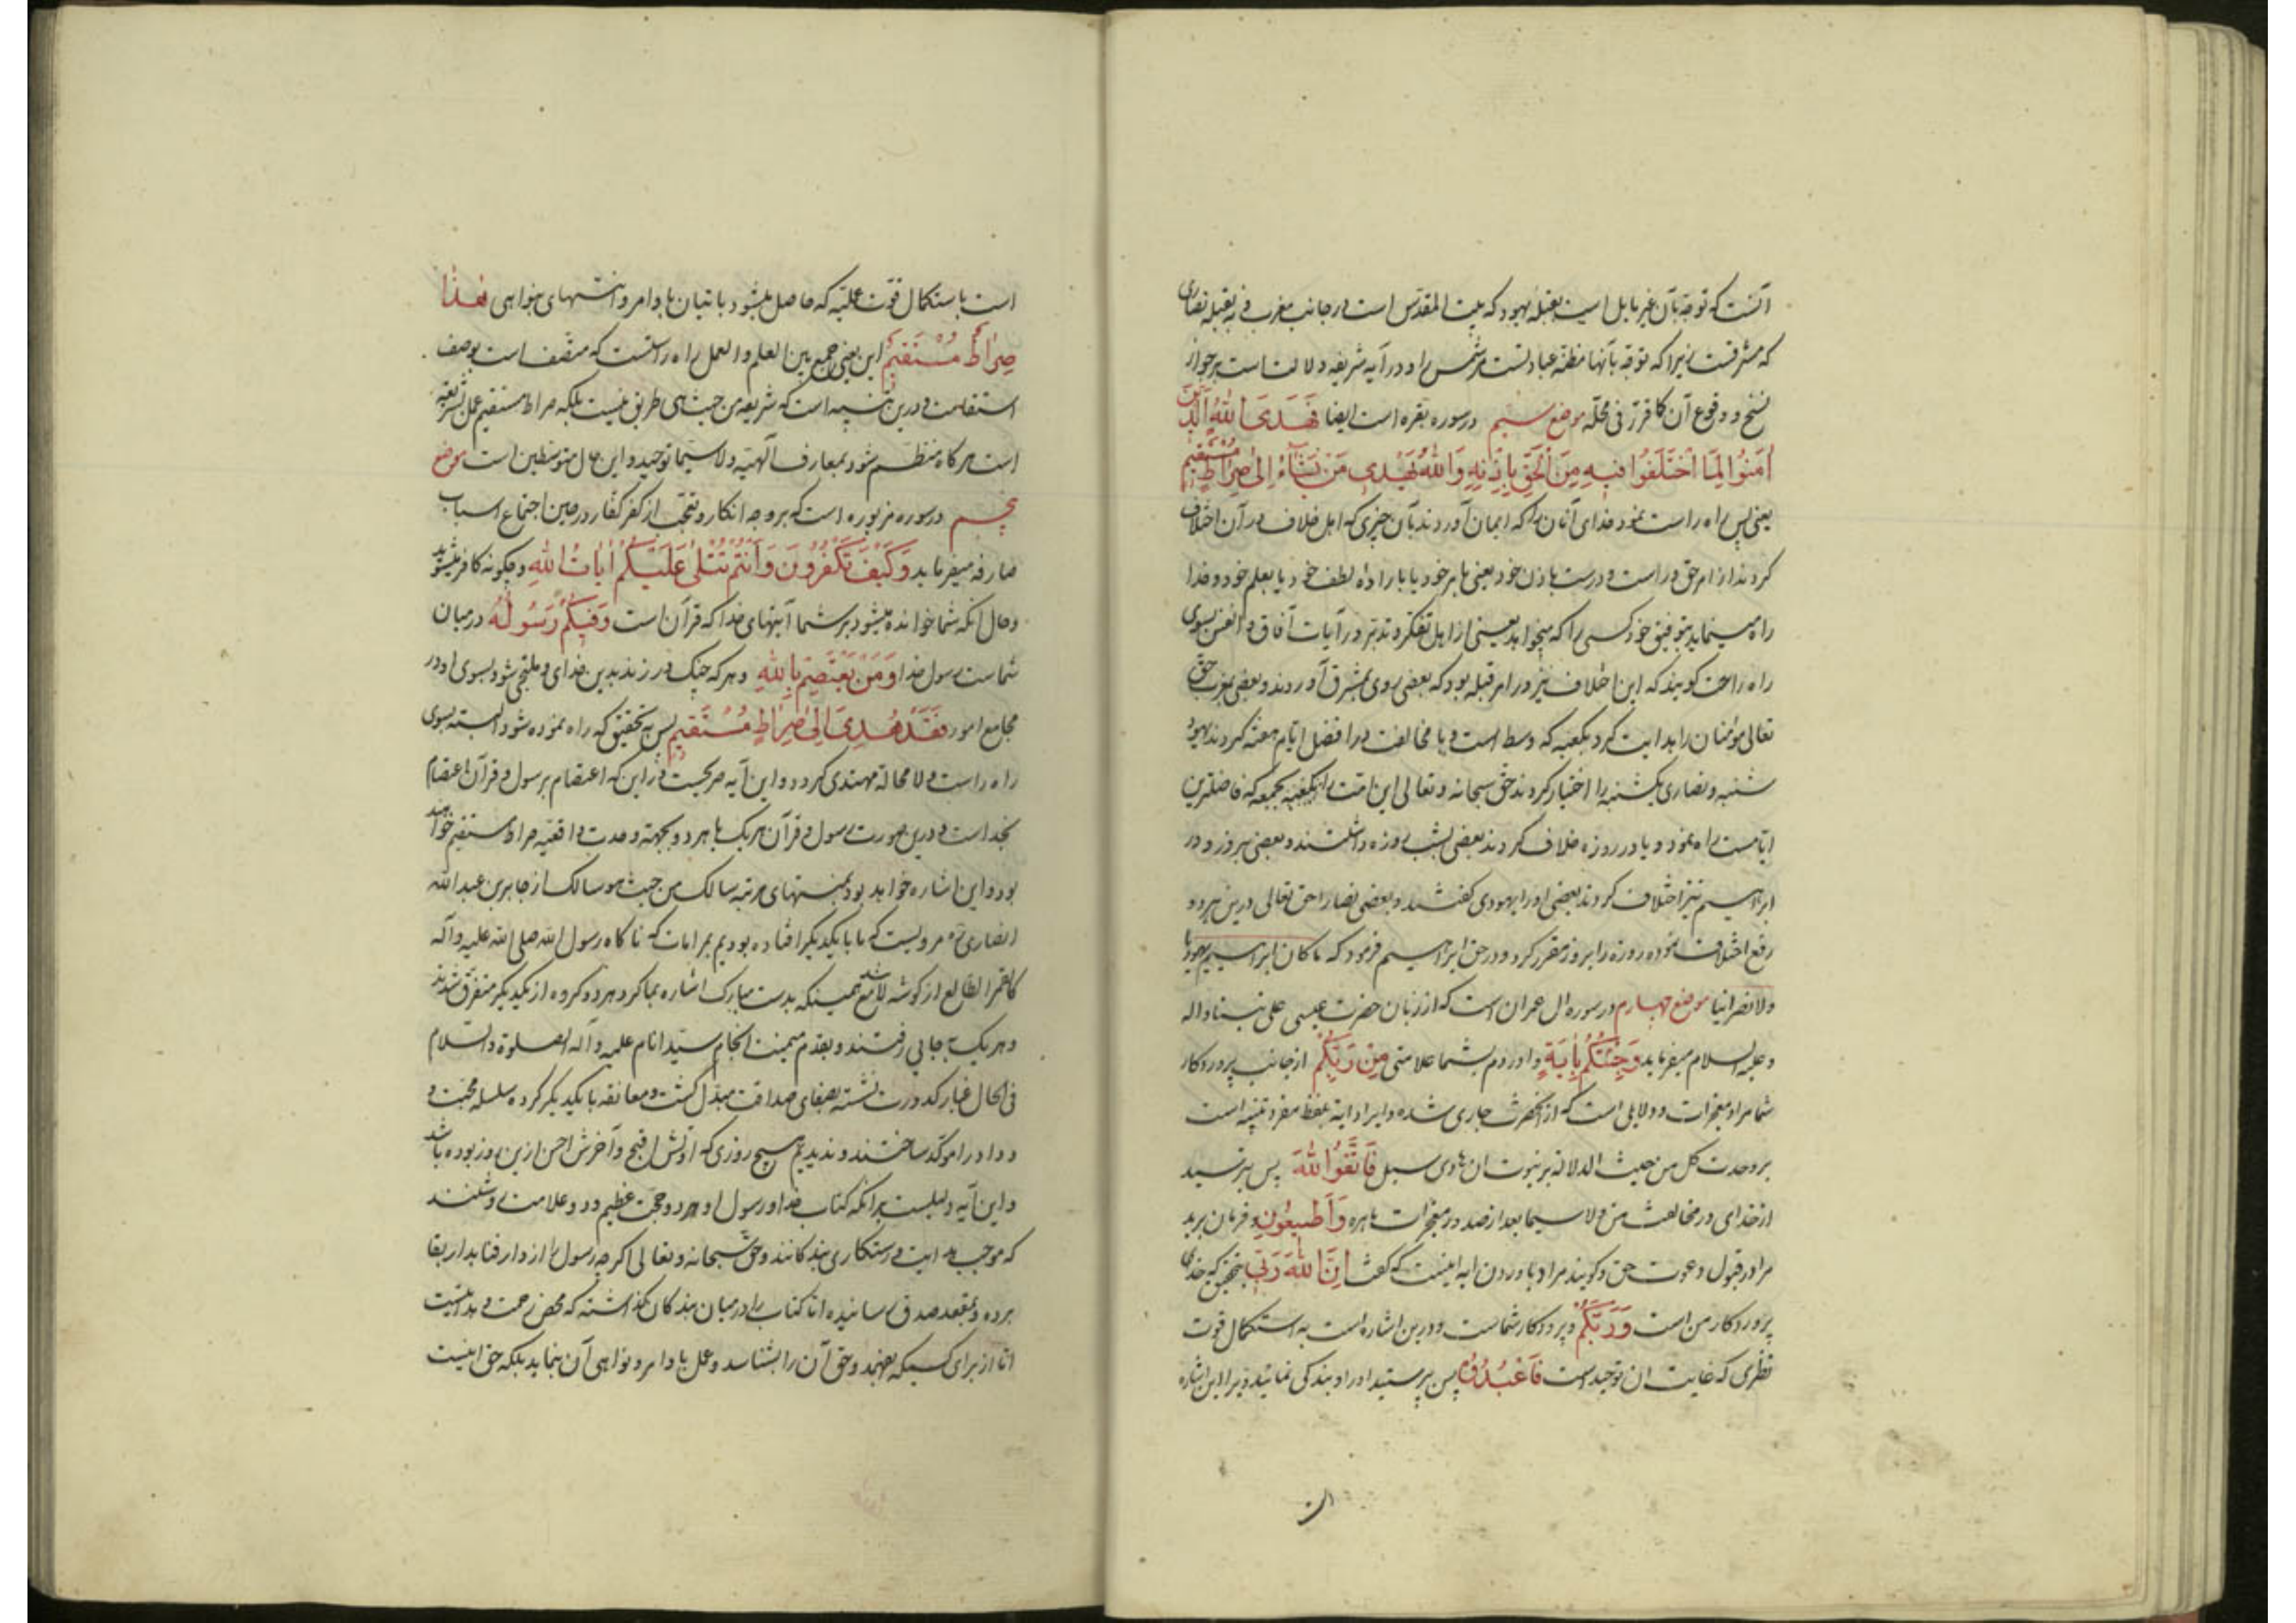 آنست که توجه بآن غیر مایل است بقبله یهود که بیت المقدس است در جانب مغرب و نه بقبله نصاری
که مشرقست زیرا که توجه بآنها مظنه عبادتست مر شمس را و در آیه شریفه دلالت است بر جواز
نسخ و وقوع آن کما قرر فی محله موضع سیم در سوره بقره است ایضا فَهَدَى اللهُ الَّذِينَ
اٰمَنُوا لِمَا اخْتَلَفُوا فِيهِ مِنَ الْحَقِّ بِاِذْنِهِ وَاللهُ يَهْدِى مَنْ يَشَآءُ اِلىٰ صِرَاطٍ مُسْتَقِيمٍ
یعنی پس راه راست نمود خدای آنان را که ایمان آوردند بآن چیزی که اهل خلاف در آن اختلاف
کردند از امر حق و راست و درست باذن خود یعنی بامر خود یا باراده و لطف خود یا بعلم خود و خدا
راه مینماید بتوفیق خود کسی را که میخواهد یعنی از اهل تفکر و تدبر در آیات آفاق و انفس بسوی
راه راست گویند که این اختلاف نیز در امر قبله بود که بعضی روی بمشرق آوردند و بعضی بمغرب حق
تعالی مؤمنان را هدایت کرد بکعبه که وسط است و یا مخالفت در افضل ایام هفته کردند یهود
شنبه و نصاری یکشنبه را اختیار کردند حق سبحانه و تعالی این امت را بجمعه که فاضلترین
ایامست راه نمود و یا در روزه خلاف کردند بعضی بشب روزه داشتند و بعضی بروز و در
ابراهیم نیز اختلاف کردند بعضی او را یهودی گفتند و بعضی نصارا حق تعالی درین هر دو
رفع اختلاف نموده روزه را بروز مقرر کرد و در حق ابراهیم فرمود که ما کان ابراهیم یهودیا
ولا نصرانیا موضع چهارم در سوره ال عمران است که از زبان حضرت عیسی علی نبینا و اله
و علیه السلام میفرماید وَجِئْتُكُمْ بِاٰيَةٍ و اوردم بشما علامتی مِنْ رَبِّكُمْ از جانب پروردکار
شما مراد معجزات و دلایلی است که از آنحضرت جاری شده و ایراد ایة بلفظ مفرد تنبیه است
بر وحدت کل من حیث الدلالة بر نبوت ان هادی سبل فَاتَّقُوا اللهَ پس بترسید
از خدای در مخالفت من ولا سیما بعد از صدور معجزات باهره وَاَطِيعُونِ و فرمان برید
مرا در قبول دعوت حق و گویند مراد باوردن ایه اینست که گفت اِنَّ اللهَ رَبِّى بتحقیق که خدای
پروردکار من است وَرَبُّكُمْ و پروردکار شماست و درین اشاره است به استکمال قوت
نظری که غایت ان توحید است فَاعْبُدُوهُ پس پرستید او را و بندکی نمائید و یرا این اشاره
است باستکمال قوت عملیه که حاصل میشود باتیان باوامر و انتهای بنواهی هٰذَا
صِرَاطٌ مُسْتَقِيمٌ این یعنی جمع بین العلم و العمل راه راستست که متصف است بوصف
استقامت و درین تنبیه است که شریعه من حیث هی طریق نیست بلکه صراط مستقیم عمل بشریعه
است هر کاه منظم شود بمعارف آلهیه ولا سیما توحید و این حال متوسطین است موضع
پنجم در سوره مزبوره است که بر وجه انکار و تعجب از کفر کفار در حین اجتماع اسباب
صارفه میفرماید وَكَيْفَ تَكْفُرُونَ وَاَنْتُمْ تُتْلىٰ عَلَيْكُمْ اٰيَاتُ اللهِ و چکونه کافر میشوید
و حال انکه شما خوانده میشود بر شما آیتهای خدا که قرآن است وَفِيكُمْ رَسُولُهُ در میان
شماست رسول خدا وَمَنْ يَعْتَصِمْ بِاللهِ و هر که چنک در زند بدین خدای و ملتجی شود بسوی او در
مجامع امور فَقَدْ هُدِىَ اِلىٰ صِرَاطٍ مُسْتَقِيمٍ پس به تحقیق که راه نموده شود البته بسوی
راه راست ولا محالة مهتدی کردد و این آیه صریحست در این که اعتصام برسول و قرآن اعتصام
بخداست و درین صورت رسول و قرآن هر یک یا هر دو بجهة وحدت واقعیه صراط مستقیم خواهند
بود و این اشاره خواهد بود بمنتهای مرتبه سالک من حیث هو سالک از جابر بن عبدالله
انصاری ره مرویست که ما با یکدیکر افتاده بودیم که ناکاه رسول الله صلی الله علیه و آله
کالقمر الطالع از کوشه لامع شد همینکه بدست مبارک اشاره بما کرد هر دو کروه از یکدیکر متفرق شدند
و هر یک بجایی رفتند و بقدم میمنت انجام سید انام علیه و آله الصلوة والسلام
فی الحال غبار کدورت نشسته بصفای صداقت مبدل کشت و معانقه با یکدیکر کرده سلسله محبت و
وداد را موکد ساختند و ندیدیم هیچ روزی که اولش اقبح و آخرش احسن ازین روز بوده باشد
و این آیه دلیلست بر انکه کتاب خدا و رسول او هر دو حجت عظیم و دو علامت روشنند
که موجب هدایت و رستکاری بندکانند و حق سبحانه و تعالی اکر چه رسول را از دار فنا بدار بقا
برده و بمقعد صدق رسانیده اما کتاب را در میان بندکان کذاشته که محض رحمت و هدایتیست
اما از برای کسیکه بفهمد و حق آن را بشناسد و عمل باوامر و نواهی آن بنماید بلکه حق اینست